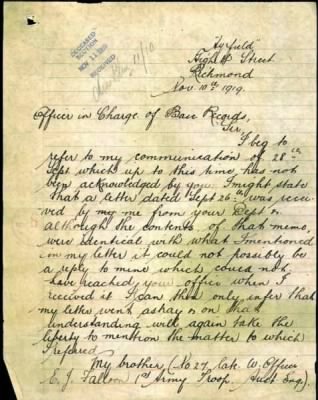 DECEASED
SECTION
NOV 11 1919
RECEIVED
11/10
"Fyfield"
High St Street
Richmond
Nov. 10th 1919.
Officer in Charge of Base Records,
Sir,
I beg to
refer to my communication of 28th
Sept which up to this time has not
been acknowledged by you. I might state
that a letter dated Sept 26th was recei-
ved by me from your Dept &
although the contents of that memo,
were identical with what I mentioned
in my letter it could not possibly be
a reply to mine which could not
have reached your office when I
received it. I can then only infer that
my letter went astray & on that
understanding will again take the
liberty to mention the matter to which
I referred.
My brother (No 27 late W. Officer
E. J. Fallon 1st Army Troop, Aust Eng.)